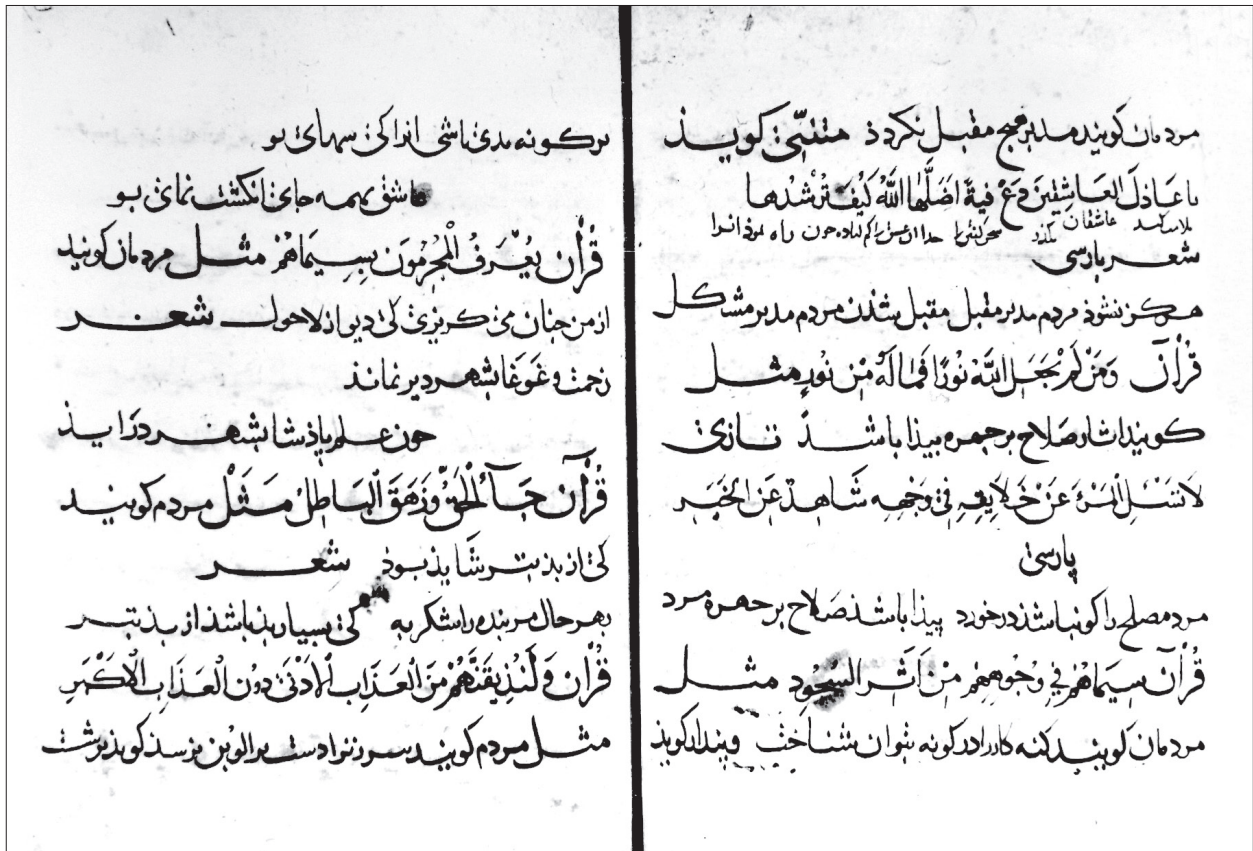 مردمان کویند مدبر هیج مقبل نکردد متنبّی کوید
یا عاذل العاشقین دع فیة اضلّها اللّه کیف ترشدها
عاشقان بکذار خدا کم راه جون راه نمود انرا
شعر پارسی
هرکز نشوذ مردم مدبر مقبل مقبل شدن مردم مدبر مشکل
قرآن ومن لم یجعل اللّه نورا فما له من نور مثل
کویند اثار صلاح بر جهره بیذا باشذ تازی
لا تسئل المرء عن خلایقه فی وجهه شاهد عن الخبر
پارسی
مرد مصلح را کونباشذ درخورد پیذا باشذ صلاح بر جهره مرد
قرآن سیماهم فی وجوههم من اثر السجود مثل
مردمان کویند کنه کار را در کونه توان شناخت وبنداز کویذ
بر کونه بدی باشی ازیرا کی سیمای تو
عاشق بهمه جای انکشت نمای بو
قرآن یعرف المجرمون بسیماهم مثل مردمان کویند
از من جنان می کریزی کی دیو از لاحول شعر
زحمت و غوغا بشهر دیر نماند
جون علم پاذشا بشهر درایذ
قرآن جآء الحقّ وزهق الباطل مثل مردم کویند
کی از بذ بتر شایذ بوذ شعر
بهر حال مر بنده را شکر به کی بسیار بذ باشذ از بذ بتر
قرآن ولنذیقنّهم من العذاب الادنی دون العذاب الاکبر
مثل مردم کویند سر و دست برالوبن نرسذ کوید ترشت